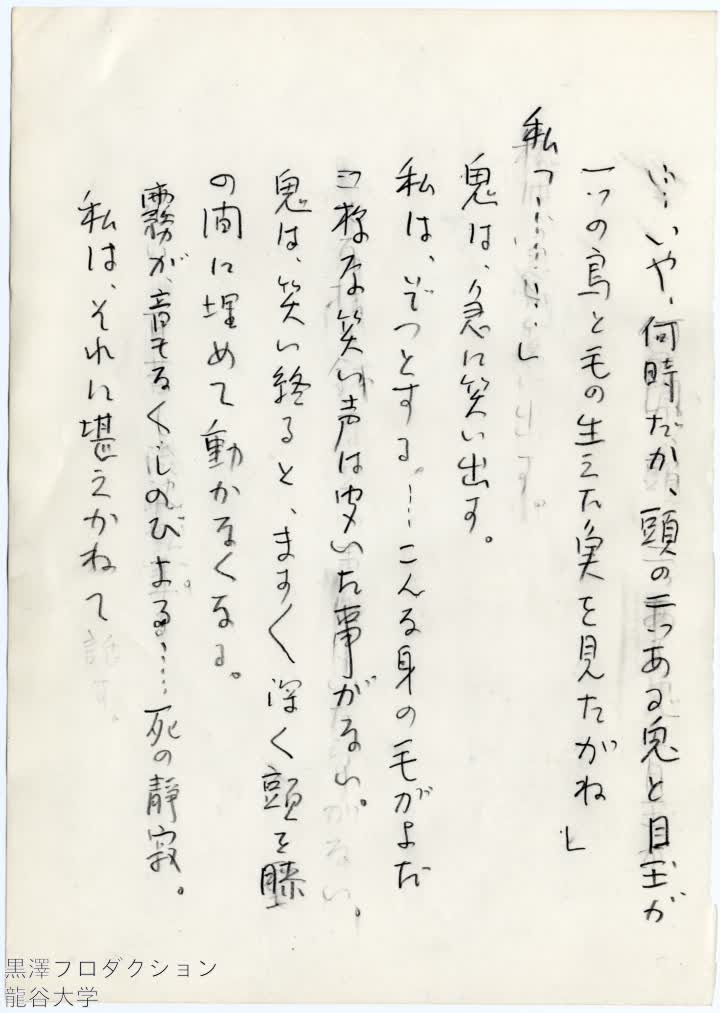 …いや、何時だか、頭の二つある兎と目玉が
一つの鳥と毛の生えた魚を見たがね」
私「………」
鬼は、急に笑い出す。
私は、ぞつとする。…こんな身の毛がよだ
つ様な笑い声は聞いた事がない。
鬼は、笑い終ると、ますく深く頭を膝
の間に埋めて動かなくなる。
霧が、音もなくしのびよる……死の静寂。
私は、それに堪えかねて
黒澤プロダクション
龍谷大学